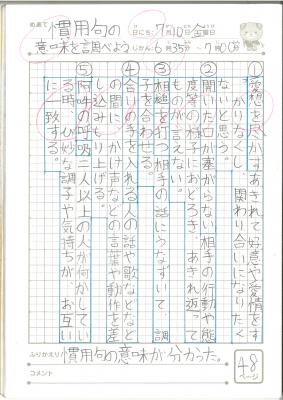 めあて 慣用句の 日にち 7月10日金曜日
意味を調べよう じかん 6時35分~7時00分
① 愛想を尽かす あきれて好意や愛情をす
っかりなくし、関わり合いになりたく
ないと思う。
② 開いた口が塞がらない 相手の行動や態
度等の様子におどろき、あきれ返って
ものが言えない。
③ 相槌を打つ 相手の話にうなずいて、調
子を合わせる。
④ 合いの手を入れる 人の話や歌などなど
の間に、かけ声などの言葉や動作を差
し込みもり上げる。
⑤ 阿吽の呼吸 二人以上の人が何かしてい
る時、ひ妙な調子や気持ちが、お互い
に一致する。
ふりかえり 慣用句の意味が分かった。
コメント
48ページ